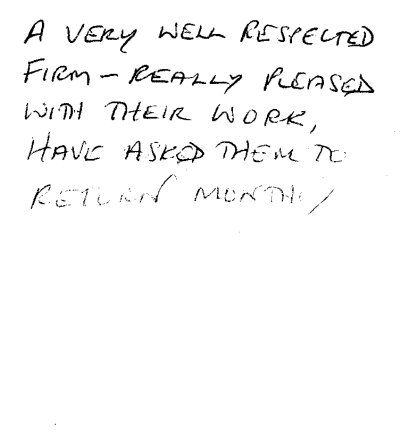 A VERY WELL RESPECTED
FIRM - REALLY PLEASED
WITH THEIR WORK,
HAVE ASKED THEM TO
RETURN MONTHLY